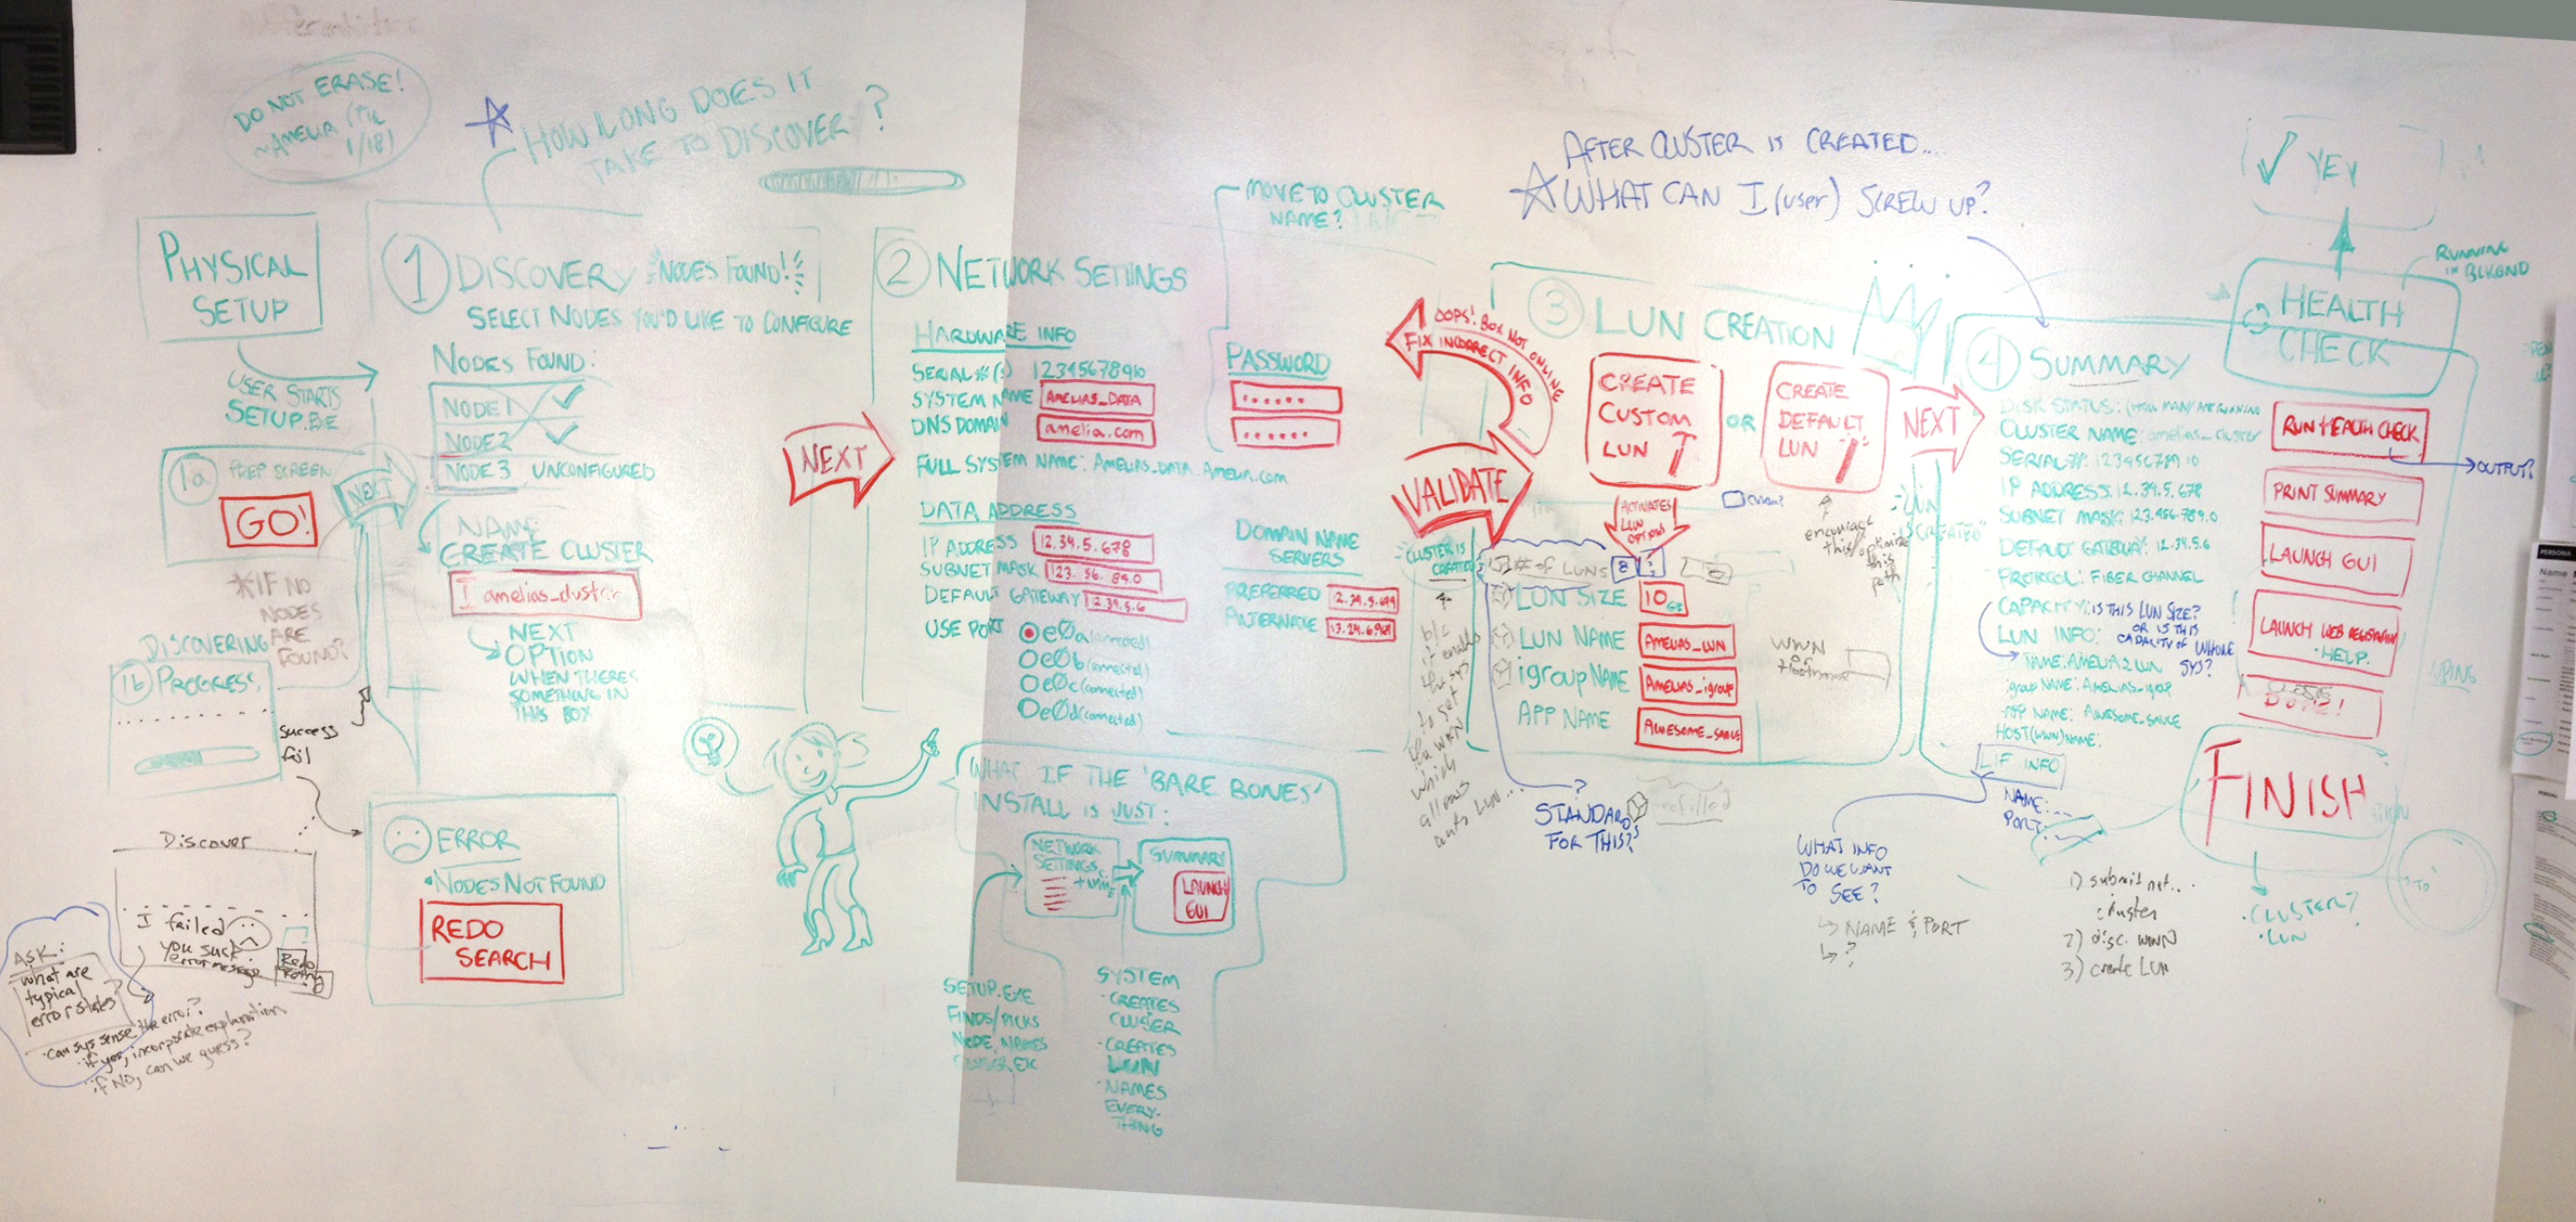 DO NOT ERASE!
~AMELIA (TIL
1/18)
HOW LONG DOES IT
TAKE TO DISCOVER?
PHYSICAL
SETUP
USER STARTS
SETUP.EXE
1a PREP SCREEN
GO!
NEXT
*IF NO
NODES
ARE
FOUND?
DISCOVERING
1b PROGRESS
success
fail
Discover
I failed
you suck
error message
Redo
ASK:
what are
typical
error states?
• Can sys sense the error?
• if yes, incorporate explanation
• if NO, can we guess?
1 DISCOVERY NODES FOUND!
SELECT NODES YOU'D LIKE TO CONFIGURE
NODES FOUND:
NODE 1
NODE 2
NODE 3 UNCONFIGURED
NAME
CREATE CLUSTER
amelias_cluster
NEXT
OPTION
WHEN THERES
SOMETHING IN
THIS BOX
ERROR
• NODES NOT FOUND
REDO
SEARCH
NEXT
2 NETWORK SETTINGS
HARDWARE INFO
SERIAL #(s) 12345678910
SYSTEM NAME AMELIAS_DATA
DNS DOMAIN amelia.com
FULL SYSTEM NAME: AMELIAS_DATA.AMELIA.com
MOVE TO CLUSTER
NAME?
PASSWORD
DATA ADDRESS
IP ADDRESS 12.34.5.678
SUBNET MASK 123.56.89.0
DEFAULT GATEWAY 12.34.5.6
USE PORT e0a (connected)
e0b (connected)
e0c (connected)
e0d (connected)
DOMAIN NAME
SERVERS
PREFERRED
ALTERNATE
WHAT IF THE 'BARE BONES'
INSTALL IS JUST:
NETWORK
SETTINGS
SUMMARY
LAUNCH
GUI
SETUP.EXE
FINDS/PICKS
NODE, NAMES
CLUSTER, ETC
SYSTEM
• CREATES
CLUSTER
• CREATES
LUN
• NAMES
EVERY-
THING
OOPS! BOX NOT ONLINE
FIX INCORRECT INFO
VALIDATE
CLUSTER IS
CREATED
b/c
it enables
the sys
to get
the WWN
which
allows
auto LUN...
3 LUN CREATION
CREATE
CUSTOM
LUN
OR
CREATE
DEFAULT
LUN
ACTIVATES
LUN
OPTIONS
encourage
this/optimize
this
path
# of LUNS 8
LUN SIZE 10 GB
LUN NAME AMELIAS_LUN
igroup NAME AMELIAS_igroup
APP NAME AWESOME_SAUCE
WWN
or
Hostname
?
STANDARDS
FOR THIS?
prefilled
NEXT
LUN
IS CREATED
AFTER CLUSTER IS CREATED...
WHAT CAN I (user) SCREW UP?
4 SUMMARY
DISK STATUS: (HOW MANY ARE RUNNING
CLUSTER NAME: amelias_cluster
SERIAL #: 12345678910
IP ADDRESS: 12.34.5.678
SUBNET MASK: 123.456.789.0
DEFAULT GATEWAY: 12.34.5.6
PROTOCOL: FIBER CHANNEL
CAPACITY: IS THIS LUN SIZE?
OR IS THIS
CAPACITY OF WHOLE
SYS?
LUN INFO:
igroup NAME: AMELIAS_igroup
APP NAME: AWESOME_SAUCE
HOST(WWN)NAME:
LIF INFO
NAME:
PORT:
WHAT INFO
DO WE WANT
TO SEE?
NAME & PORT
?
1) submit net..
cluster
2) disc. WWN
3) create LUN
YEY
RUNNING
IN BCKGND
HEALTH
CHECK
RUN HEALTH CHECK
OUTPUT?
PRINT SUMMARY
LAUNCH GUI
LAUNCH WEB REGISTRATION
• HELP
FINISH
• CLUSTER?
• LUN